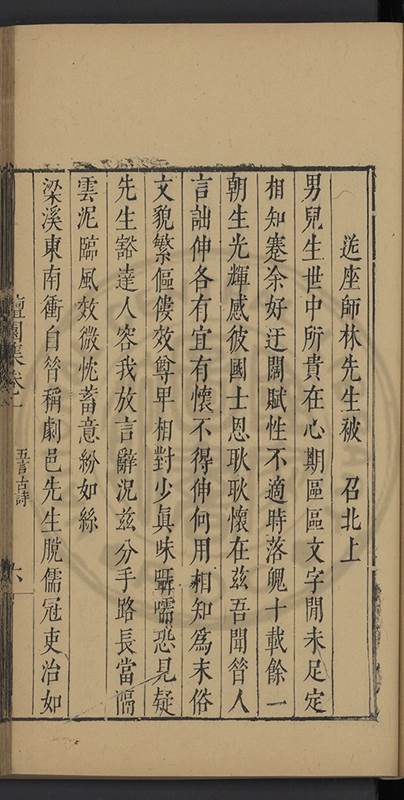 送座師林先生被 召北上
男兒生世中所貴在心期區區文字間未足定
相知蹇余好迂闊賦性不適時落魄十載餘一
朝生光輝感彼國士恩耿耿懷在茲吾聞昝人
言詘伸各有宜有懷不得伸何用相知為末俗
文貌繁傴僂效尊卑相對少真味囁嚅恐見疑
先生豁達人容我放言辭況茲分手路長當隔
雲泥臨風效微忱蓄意紛如絲
梁溪東南衝自昝稱劇邑先生脫儒冠吏治如
檀園集卷一 五言古詩 六